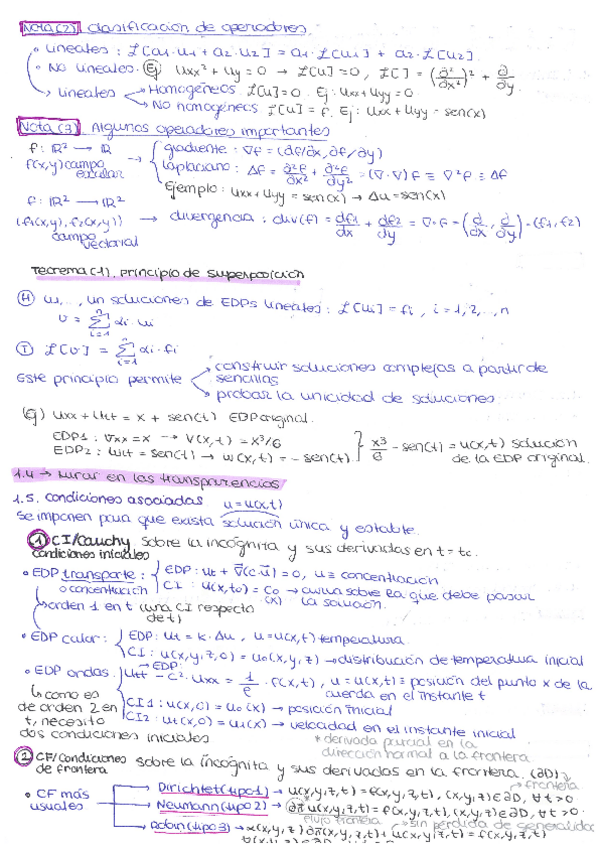 Nota(2) Clasificación de operadores
• Lineales : ℒ[a1·u1 + a2·u2] = a1·ℒ[u1] + a2·ℒ[u2]
• No lineales. Ej uxx² + uy = 0 → ℒ[u] = 0, ℒ[ ] = (∂²/∂x²)² + ∂/∂y
Lineales → Homogéneos ℒ[u]=0. Ej: uxx + uyy = 0
→ No homogéneos ℒ[u] = f. Ej: uxx + uyy = sen(x)
Nota(3) Algunos operadores importantes
f: ℝ² → ℝ
f(x,y) campo escalar → gradiente : ∇f = (df/∂x, ∂f/∂y)
laplaciano : Δf = ∂²f/∂x² + ∂²f/∂y² = (∇·∇)f ≡ ∇²f ≡ Δf
Ejemplo: uxx + uyy = sen(x) → Δu = sen(x)
f: ℝ² → ℝ²
(f1(x,y), f2(x,y)) → divergencia : div(f) = df1/dx + df2/dy = ∇·f = (d/dx, d/dy)·(f1, f2)
campo vectorial
Teorema(1). principio de superposición
(H) u1,..., un soluciones de EDPs lineales : ℒ[ui] = fi, i = 1,2,..,n
v = Σ i=1 n αi·ui
(T) ℒ[v] = Σ i=1 n αi·fi
Este principio permite → construir soluciones complejas a partir de sencillas
→ probar la unicidad de soluciones
(Ej) uxx + utt = x + sen(t) EDP original.
EDP1 : vxx = x → v(x,t) = x³/6
EDP2 : wtt = sen(t) → w(x,t) = - sen(t)
x³/6 - sen(t) = u(x,t) solución de la EDP original.
1.4 → Mirar en las transparencias
1.5. Condiciones asociadas u = u(x,t)
Se imponen para que exista solución única y estable.
1 CI/Cauchy sobre la incógnita y sus derivadas en t = t0.
condiciones iniciales
• EDP transporte : EDP: ut + ∇(c·u) = 0, u ≡ concentración
concentración CI : u(x,t0) = C0(x) → curva sobre la que debe pasar la solución.
orden 1 en t (una CI respecto de t)
• EDP calor : EDP: ut = k·Δu, u = u(x,t) temperatura
CI : u(x,y,z,0) = u0(x,y,z) → distribución de temperatura inicial
• EDP ondas EDP: utt - c²·uxx = 1/ρ · f(x,t), u = u(x,t) ≡ posición del punto x de la cuerda en el instante t
como es de orden 2 en t, necesito dos condiciones iniciales
CI1 : u(x,0) = u0(x) → posición inicial
CI2 : ut(x,0) = u1(x) → velocidad en el instante inicial
* derivada parcial en la dirección normal a la frontera
2 CF/Condiciones de frontera sobre la incógnita y sus derivadas en la frontera. (∂D)
frontera
• CF más usuales → Dirichlet(tipo1) → u(x,y,z,t) = f(x,y,z,t), (x,y,z) ∈ ∂D, ∀t>0
→ Neumann(tipo2) → ∂n u(x,y,z,t) = f(x,y,z,t), (x,y,z) ∈ ∂D, ∀t>0.
flujo frontera
sin pérdida de generalidad
→ Robin(tipo3) → α(x,y,z) ∂n(x,y,z,t) + u(x,y,z,t) = f(x,y,z,t)